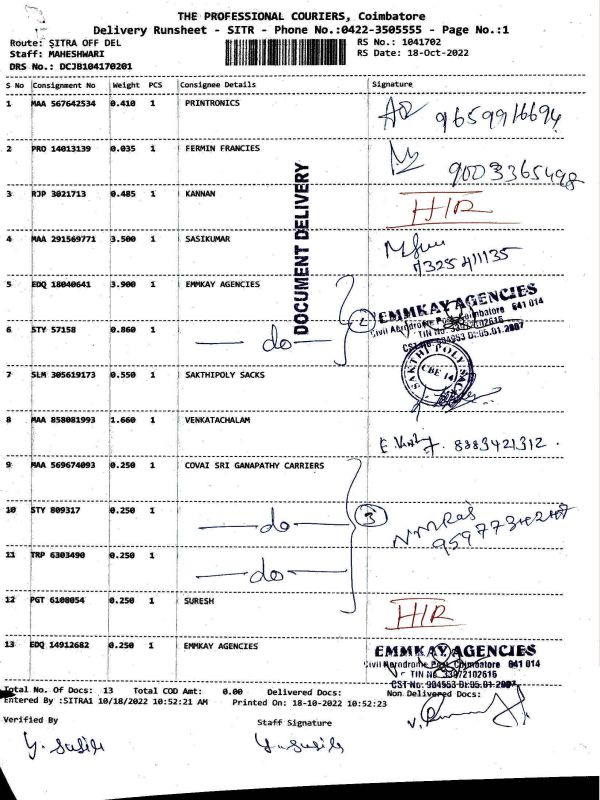 THE PROFESSIONAL COURIERS, Coimbatore
Delivery Runsheet - SITR - Phone No.:0422-3505555 - Page No.:1
Route: SITRA OFF DEL
RS No.: 1041702
Staff: MAHESHWARI
RS Date: 18-Oct-2022
DRS No.: DCJB104170201
S No Consignment No Weight PCS Consignee Details Signature
1 MAA 567642534 0.410 1 PRINTRONICS 9659916694
2 PRO 14013139 0.035 1 FERMIN FRANCIES 9003365498
DOCUMENT DELIVERY
3 RJP 3021713 0.485 1 KANNAN H/R
4 MAA 291569771 3.500 1 SASIKUMAR 7325411135
5 EDQ 18040641 3.900 1 EMMKAY AGENCIES 2 EMMKAY AGENCIES
Coimbatore 641 014
6 STY 57158 0.860 1 do
7 SLM 305619173 0.550 1 SAKTHIPOLY SACKS SAKTHI POLY SACKS CBE 14
8 MAA 858081993 1.660 1 VENKATACHALAM 8883421312
9 MAA 569674093 0.250 1 COVAI SRI GANAPATHY CARRIERS
10 STY 809317 0.250 1 do 3
11 TRP 6303490 0.250 1 do
12 PGT 6108054 0.250 1 SURESH H/R
13 EDQ 14912682 0.250 1 EMMKAY AGENCIES EMMKAY AGENCIES
Civil Aerodrome Post, Coimbatore 641 014
Total No. Of Docs: 13 Total COD Amt: 0.00 Delivered Docs: Non Delivered Docs:
Entered By :SITRA1 10/18/2022 10:52:21 AM Printed On: 18-10-2022 10:52:23
Verified By Staff Signature